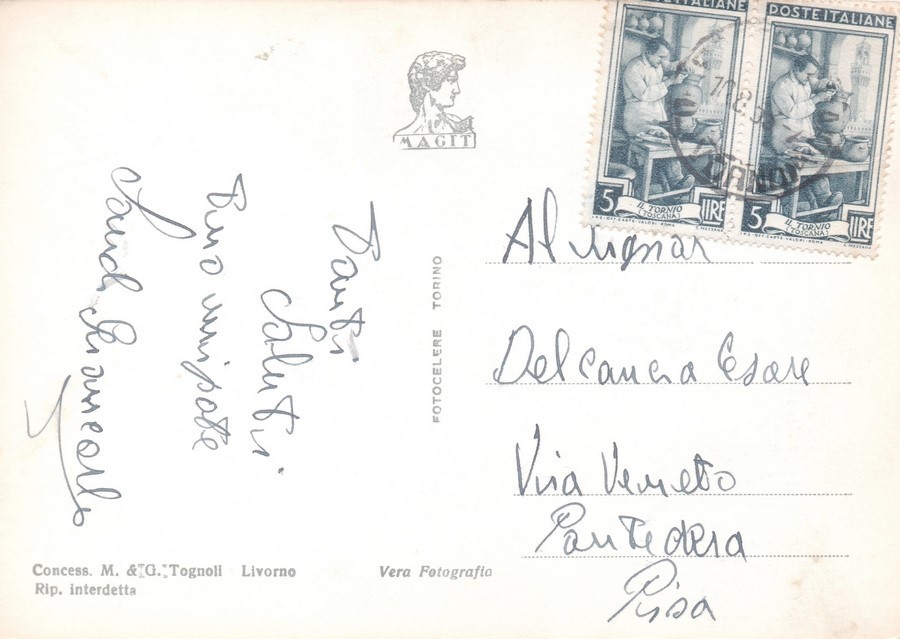 POSTE ITALIANE
POSTE ITALIANE
5 LIRE
IL TORNIO
(TOSCANA)
5 LIRE
IL TORNIO
(TOSCANA)
MAGIT
Tanti
Saluti
tuo nipote
FOTOCELERE TORINO
Al Signor
Del cancia Cesare
Via Veneto
Pontedera
Pisa
Concess. M. & G. Tognoli Livorno
Rip. interdetta
Vera Fotografia